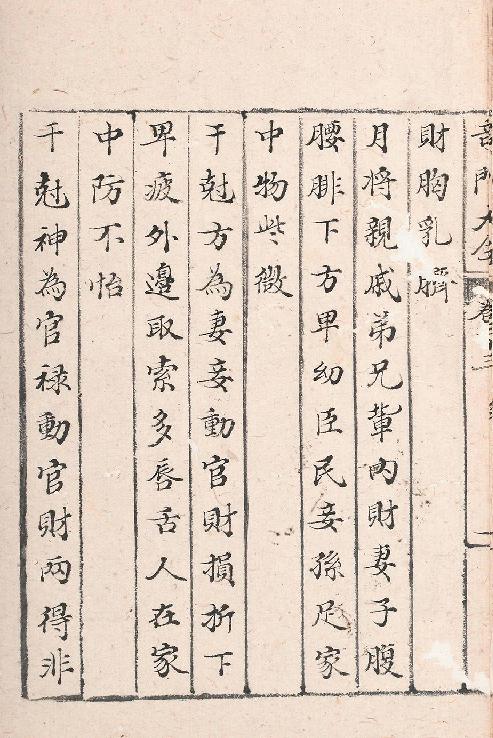 大全
財胸乳臍
月将親戚弟兄軰内財妻子腹
腰腓下方卑幼臣民妾孫足家
中物類徵
干尅方為妻妾動官財損折下
卑疲外邊取索多唇舌人在家
中防不怡
干尅神為官禄動官財兩得非